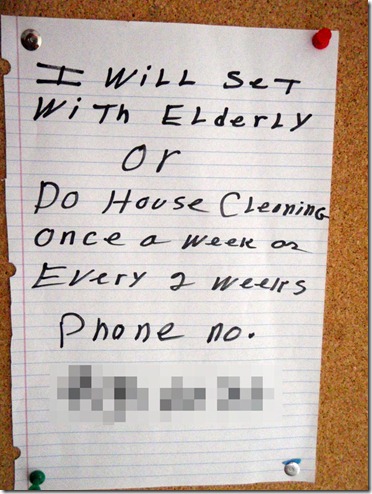 I WiLL SeT
WiTh ELderLy
or
Do House Cleaning
once a week or
Every 2 weeks
Phone no.